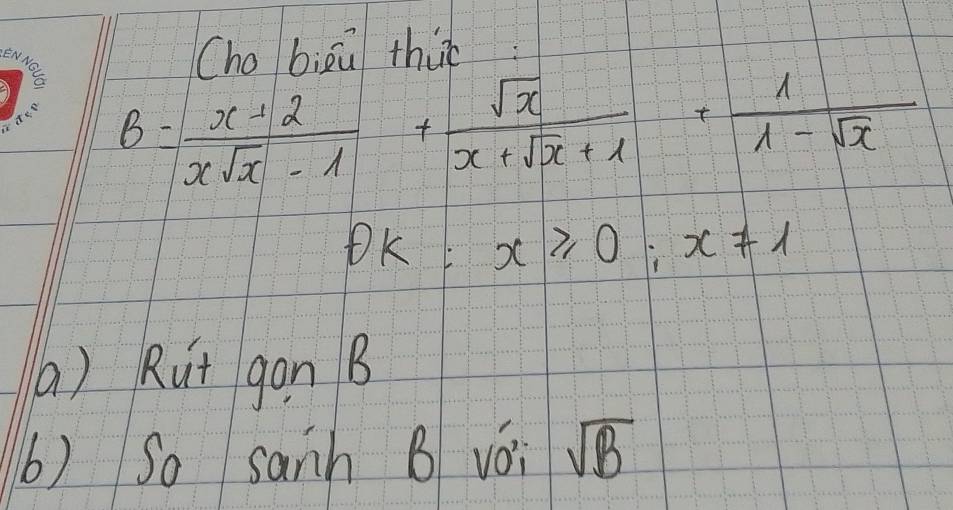 ÊN NGƯỜI
Cho biểu thức :
B = \frac{x + 2}{x\sqrt{x} - 1} + \frac{\sqrt{x}}{x + \sqrt{x} + 1} + \frac{1}{1 - \sqrt{x}}
ĐK : x ≥ 0 ; x ≠ 1
a) Rút gọn B
b) So sánh B với √B